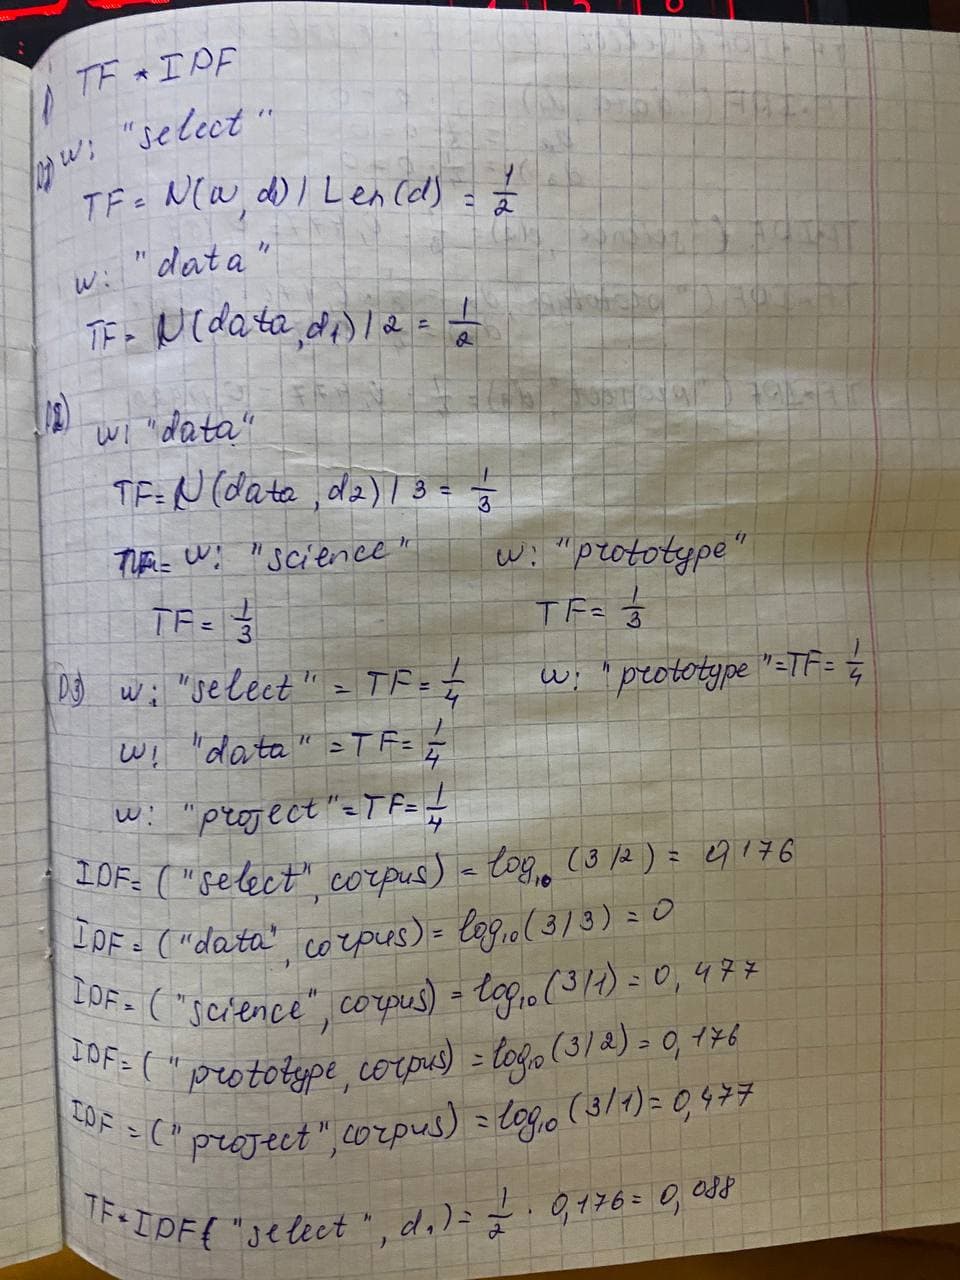 1) TF * IDF
D1) w: "select"
TF = N(w, d) / Len(d) = 1/2
w: "data"
TF = N(data, d1) / 2 = 1/2
D2) w: "data"
TF = N(data, d2) / 3 = 1/3
w: "science" w: "prototype"
TF = 1/3 TF = 1/3
D3) w: "select" = TF = 1/4 w: "prototype" = TF = 1/4
w: "data" = TF = 1/4
w: "project" = TF = 1/4
IDF = ("select", corpus) = log10 (3/2) = 0,176
IDF = ("data", corpus) = log10 (3/3) = 0
IDF = ("science", corpus) = log10 (3/1) = 0,477
IDF = ("prototype, corpus) = log10 (3/2) = 0,176
IDF = ("project", corpus) = log10 (3/1) = 0,477
TF * IDF ("select", d1) = 1/2 · 0,176 = 0,088